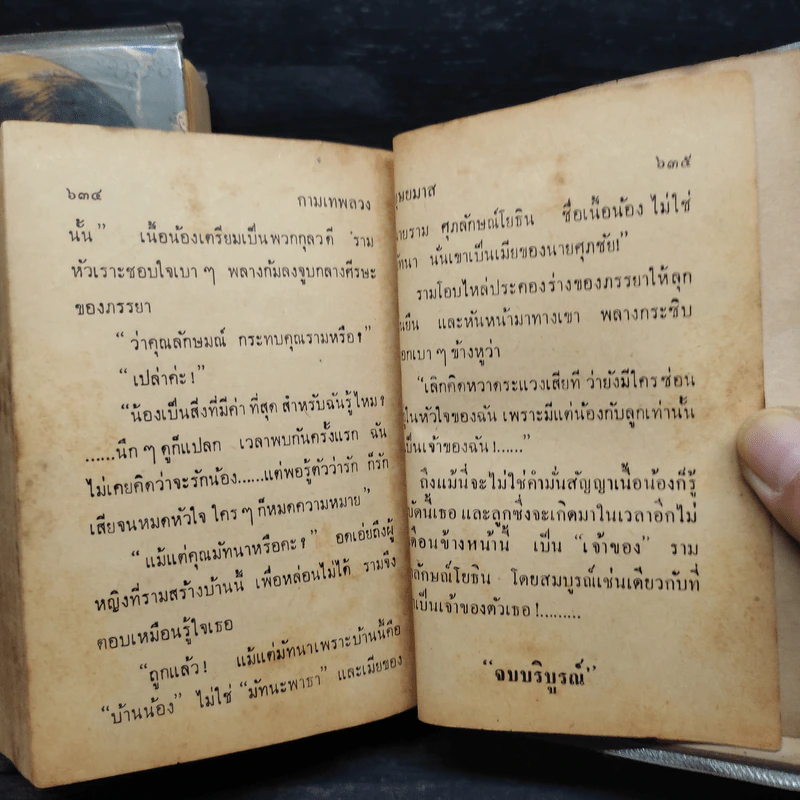 ๖๓๔ กามเทพลวง
นั้น” เนื้อน้องเตรียมเป็นพวกกุลวดี ราม
หัวเราะชอบใจเบา ๆ พลางก้มลงจูบกลางศีรษะ
ของภรรยา
“ ว่าคุณลักษมณ์ กระทบคุณรามหรือ ? ”
“ เปล่าค่ะ ! ”
“น้องเป็นสิ่งที่มีค่า ที่สุด สำหรับฉันรู้ไหม ?
......นึก ๆ ดูก็แปลก เวลาพบกันครั้งแรก ฉัน
ไม่เคยคิดว่าจะรักน้อง......แต่พอรู้ตัวว่ารัก ก็รัก
เสียจนหมดหัวใจ ใคร ๆ ก็หมดความหมาย”
“ แม้แต่คุณมัทนาหรือคะ ? ” อดเอ่ยถึงผู้
หญิงที่รามสร้างบ้านนี้ เพื่อหล่อนไม่ได้ รามจึง
ตอบเหมือนรู้ใจเธอ
“ถูกแล้ว ! แม้แต่มัทนาเพราะบ้านนี้คือ
“บ้านน้อง” ไม่ใช่ “มัทนะพาธา” และเมียของ
๖๓๕
บุษยมาส
นายราม ศุภลักษณ์โยธิน ชื่อเนื้อน้อง ไม่ใช่
มัทนา นั่นเขาเป็นเมียของนายศุภชัย!”
รามโอบไหล่ประคองร่างของภรรยาให้ลุก
ยืน และหันหน้ามาทางเขา พลางกระซิบ
บอกเบา ๆ ข้างหูว่า
“เลิกคิดหวาดระแวงเสียที ว่ายังมีใครซ่อน
ในหัวใจของฉัน เพราะมีแต่น้องกับลูกเท่านั้น
เป็นเจ้าของฉัน !......”
ถึงแม้นี่จะไม่ใช่คำมั่นสัญญาเนื้อน้องก็รู้
บัดนี้เธอ และลูกซึ่งจะเกิดมาในเวลาอีกไม่
เดือนข้างหน้านี้ เป็น “เจ้าของ” ราม
ลักษณ์โยธิน โดยสมบูรณ์เช่นเดียวกับที่
เป็นเจ้าของตัวเธอ !.........
“จบบริบูรณ์”